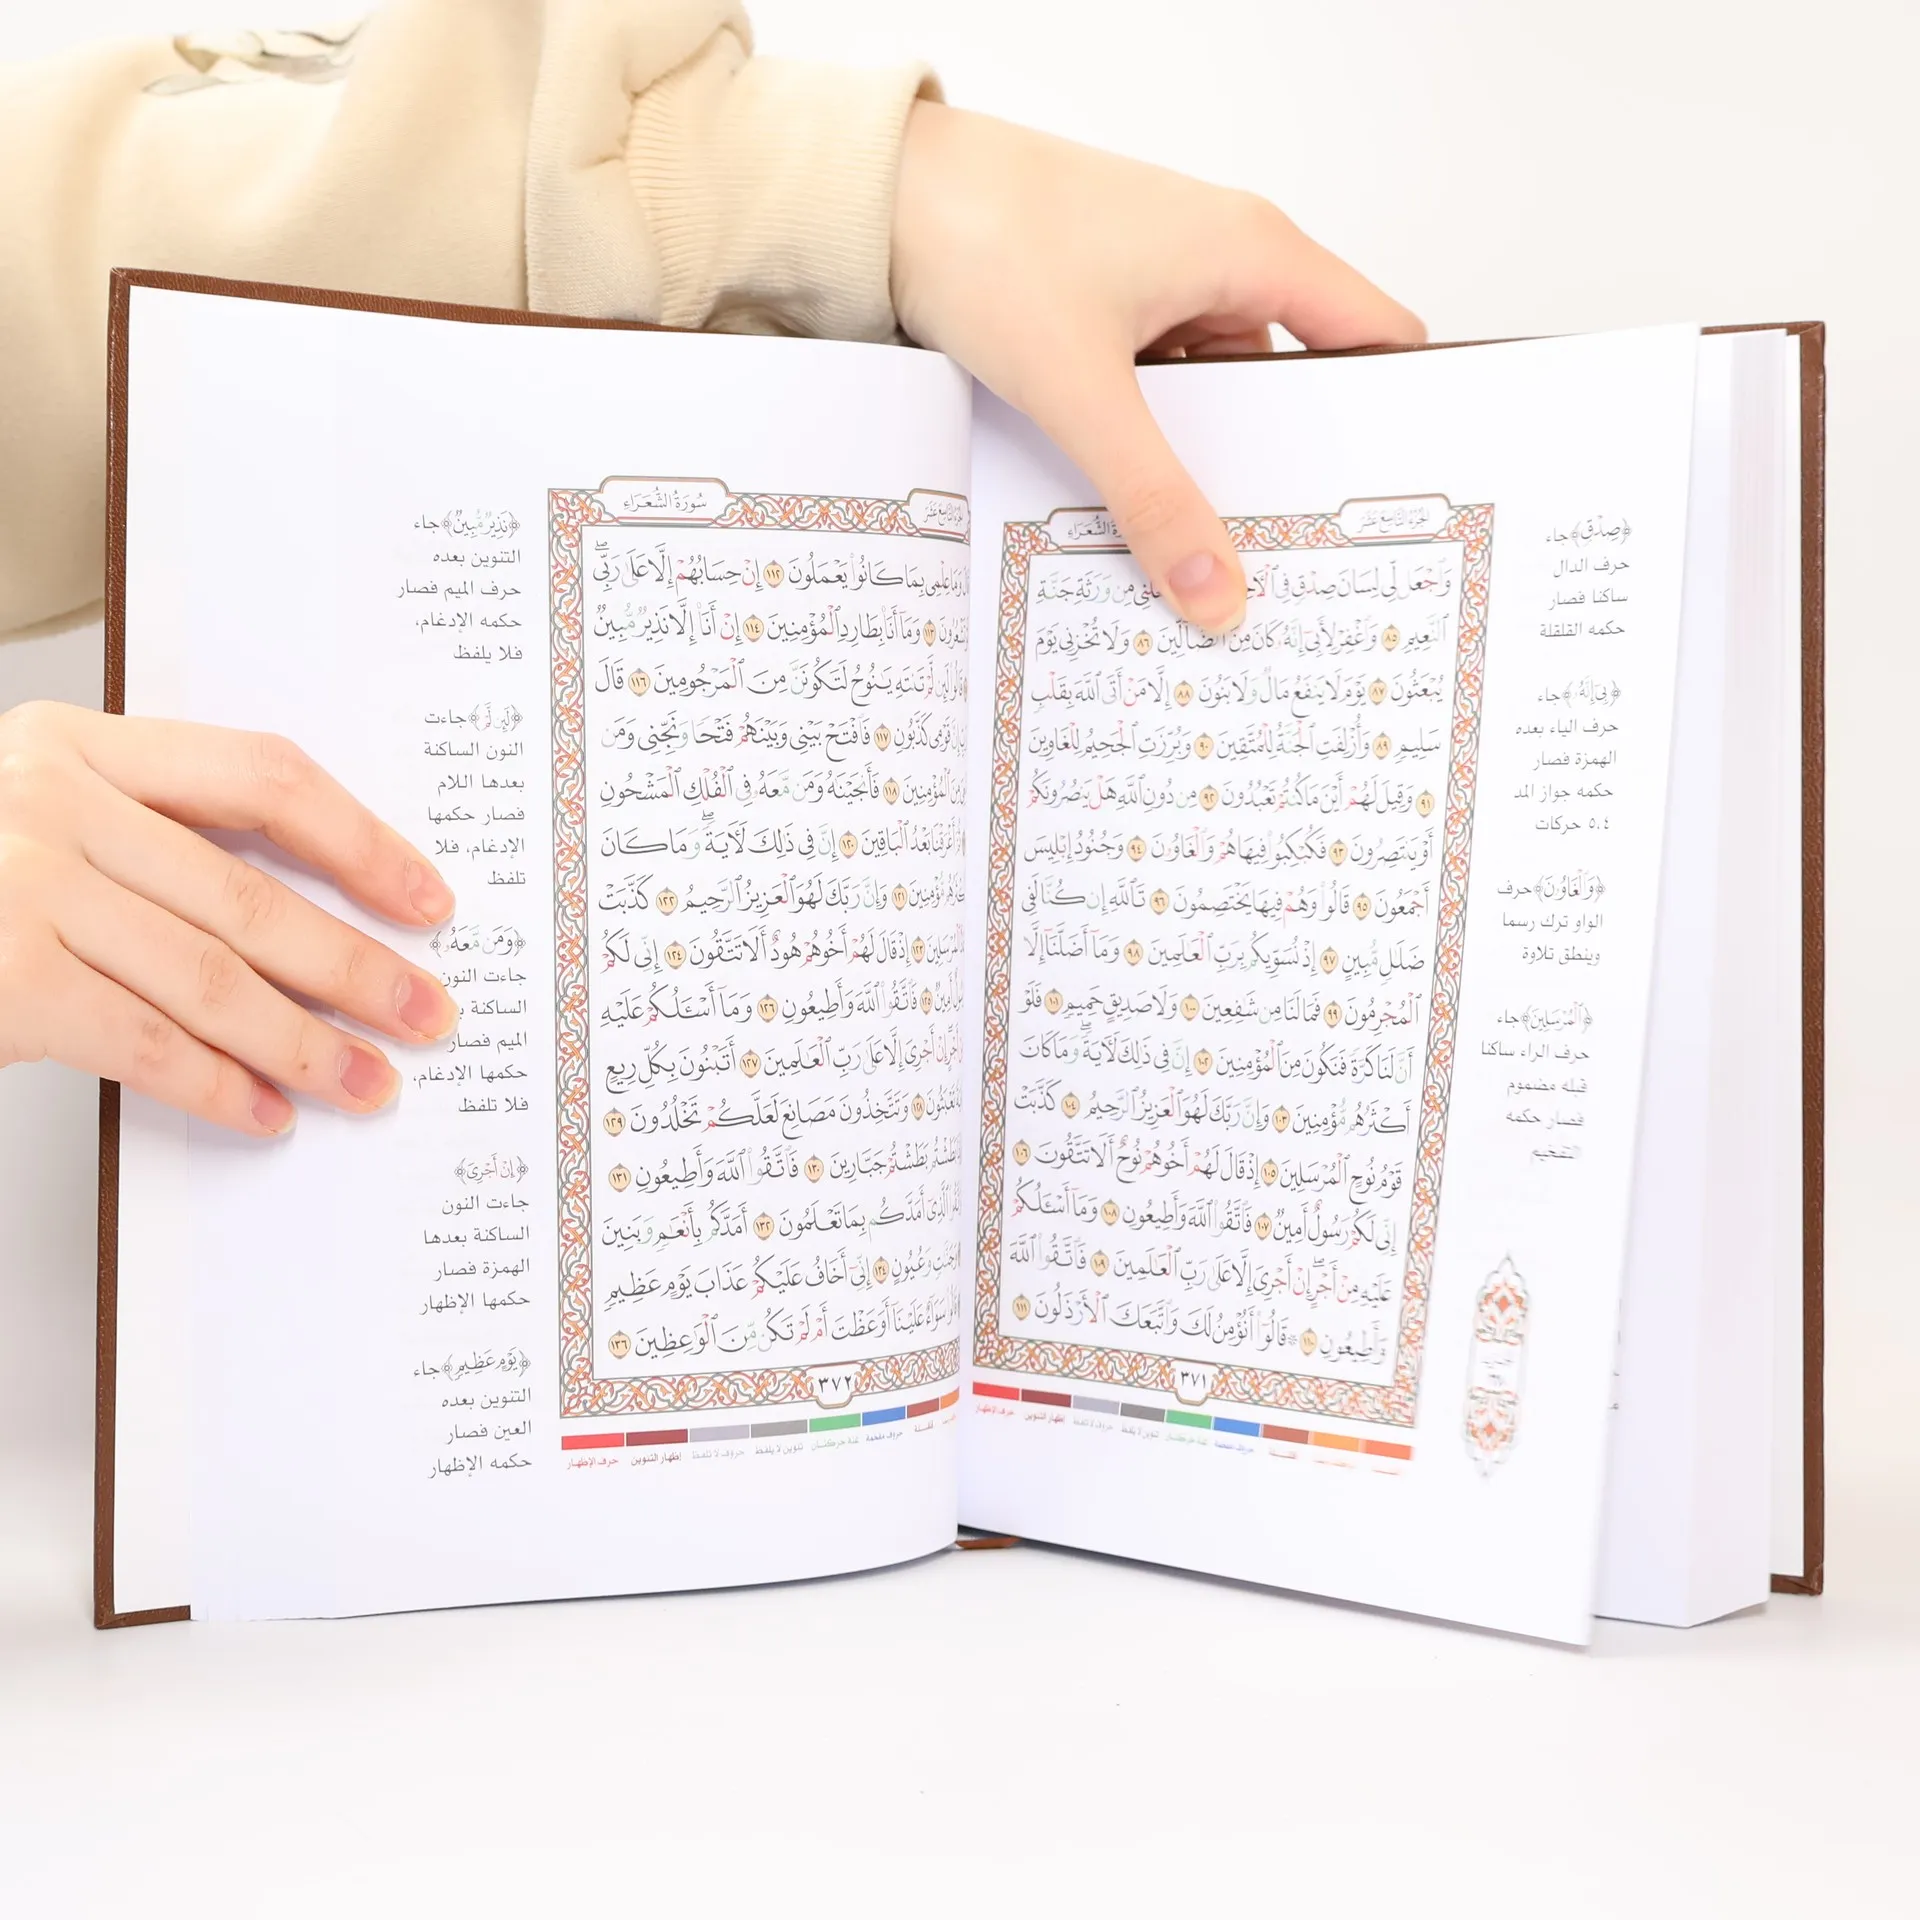 الجزء التاسع عشر
وَٱجۡعَل لِّي لِسَانَ صِدۡقٖ فِي مِن وَرَثَةِ جَنَّةِ
ٱلنَّعِيمِ ٨٥ وَٱغۡفِرۡ لِأَبِيٓ إِنَّهُۥ كَانَ مِنَ ٱلضَّآلِّينَ ٨٦ وَلَا تُخۡزِنِي يَوۡمَ
يُبۡعَثُونَ ٨٧ يَوۡمَ لَا يَنفَعُ مَالٞ وَلَا بَنُونَ ٨٨ إِلَّا مَنۡ أَتَى ٱللَّهَ بِقَلۡبٖ
سَلِيمٖ ٨٩ وَأُزۡلِفَتِ ٱلۡجَنَّةُ لِلۡمُتَّقِينَ ٩٠ وَبُرِّزَتِ ٱلۡجَحِيمُ لِلۡغَاوِينَ
٩١ وَقِيلَ لَهُمۡ أَيۡنَ مَا كُنتُمۡ تَعۡبُدُونَ ٩٢ مِن دُونِ ٱللَّهِ هَلۡ يَنصُرُونَكُمۡ
أَوۡ يَنتَصِرُونَ ٩٣ فَكُبۡكِبُواْ فِيهَا هُمۡ وَٱلۡغَاوُۥنَ ٩٤ وَجُنُودُ إِبۡلِيسَ
أَجۡمَعُونَ ٩٥ قَالُواْ وَهُمۡ فِيهَا يَخۡتَصِمُونَ ٩٦ تَٱللَّهِ إِن كُنَّا لَفِي
ضَلَٰلٖ مُّبِينٍ ٩٧ إِذۡ نُسَوِّيكُم بِرَبِّ ٱلۡعَٰلَمِينَ ٩٨ وَمَآ أَضَلَّنَآ إِلَّا
ٱلۡمُجۡرِمُونَ ٩٩ فَمَا لَنَا مِن شَٰفِعِينَ ١٠٠ وَلَا صَدِيقٍ حَمِيمٖ ١٠١ فَلَوۡ
أَنَّ لَنَا كَرَّةٗ فَنَكُونَ مِنَ ٱلۡمُؤۡمِنِينَ ١٠٢ إِنَّ فِي ذَٰلِكَ لَأٓيَةٗۖ وَمَا كَانَ
أَكۡثَرُهُم مُّؤۡمِنِينَ ١٠٣ وَإِنَّ رَبَّكَ لَهُوَ ٱلۡعَزِيزُ ٱلرَّحِيمُ ١٠٤ كَذَّبَتۡ
قَوۡمُ نُوحٍ ٱلۡمُرۡسَلِينَ ١٠٥ إِذۡ قَالَ لَهُمۡ أَخُوهُمۡ نُوحٌ أَلَا تَتَّقُونَ ١٠٦
إِنِّي لَكُمۡ رَسُولٌ أَمِينٞ ١٠٧ فَٱتَّقُواْ ٱللَّهَ وَأَطِيعُونِ ١٠٨ وَمَآ أَسۡـَٔلُكُمۡ
عَلَيۡهِ مِنۡ أَجۡرٍۖ إِنۡ أَجۡرِيَ إِلَّا عَلَىٰ رَبِّ ٱلۡعَٰلَمِينَ ١٠٩ فَٱتَّقُواْ ٱللَّهَ
وَأَطِيعُونِ ١١٠ ۞ قَالُوٓاْ أَنُؤۡمِنُ لَكَ وَٱتَّبَعَكَ ٱلۡأَرۡذَلُونَ ١١١
٣٧١
﴿صِدۡقٖ﴾ جاء
حرف الدال
ساكنا فصار
حكمه القلقلة
﴿بِيٓ إِنَّهُۥ﴾ جاء
حرف الياء بعده
الهمزة فصار
حكمه جواز المد
٥،٤ حركات
﴿وَٱلۡغَاوُۥنَ﴾ حرف
الواو ترك رسما
وينطق تلاوة
﴿ٱلۡمُرۡسَلِينَ﴾ جاء
حرف الراء ساكنا
قبله مضموم
فصار حكمه
التفخيم
الجزء التاسع عشر
سورة الشعراء
وَمَا عِلۡمِي بِمَا كَانُواْ يَعۡمَلُونَ ١١٢ إِنۡ حِسَابُهُمۡ إِلَّا عَلَىٰ رَبِّيۖ
١١٣ وَمَآ أَنَا۠ بِطَارِدِ ٱلۡمُؤۡمِنِينَ ١١٤ إِنۡ أَنَا۠ إِلَّا نَذِيرٞ مُّبِينٞ
لَّمۡ تَنتَهِ يَٰنُوحُ لَتَكُونَنَّ مِنَ ٱلۡمَرۡجُومِينَ ١١٦ قَالَ
إِنَّ قَوۡمِي كَذَّبُونِ ١١٧ فَٱفۡتَحۡ بَيۡنِي وَبَيۡنَهُمۡ فَتۡحٗا وَنَجِّنِي وَمَن
مِنَ ٱلۡمُؤۡمِنِينَ ١١٨ فَأَنجَيۡنَٰهُ وَمَن مَّعَهُۥ فِي ٱلۡفُلۡكِ ٱلۡمَشۡحُونِ
أَغۡرَقۡنَا بَعۡدُ ٱلۡبَاقِينَ ١٢٠ إِنَّ فِي ذَٰلِكَ لَأٓيَةٗۖ وَمَا كَانَ
مُّؤۡمِنِينَ ١٢١ وَإِنَّ رَبَّكَ لَهُوَ ٱلۡعَزِيزُ ٱلرَّحِيمُ ١٢٢ كَذَّبَتۡ
ٱلۡمُرۡسَلِينَ ١٢٣ إِذۡ قَالَ لَهُمۡ أَخُوهُمۡ هُودٌ أَلَا تَتَّقُونَ ١٢٤ إِنِّي لَكُمۡ
أَمِينٞ ١٢٥ فَٱتَّقُواْ ٱللَّهَ وَأَطِيعُونِ ١٢٦ وَمَآ أَسۡـَٔلُكُمۡ عَلَيۡهِ
إِنۡ أَجۡرِيَ إِلَّا عَلَىٰ رَبِّ ٱلۡعَٰلَمِينَ ١٢٧ أَتَبۡنُونَ بِكُلِّ رِيعٍ
١٢٨ وَتَتَّخِذُونَ مَصَانِعَ لَعَلَّكُمۡ تَخۡلُدُونَ ١٢٩
بَطَشۡتُمۡ جَبَّارِينَ ١٣٠ فَٱتَّقُواْ ٱللَّهَ وَأَطِيعُونِ ١٣١
ٱلَّذِيٓ أَمَدَّكُم بِمَا تَعۡلَمُونَ ١٣٢ أَمَدَّكُم بِأَنۡعَٰمٖ وَبَنِينَ
وَعُيُونٍ ١٣٤ إِنِّيٓ أَخَافُ عَلَيۡكُمۡ عَذَابَ يَوۡمٍ عَظِيمٖ
سَوَآءٌ عَلَيۡنَآ أَوَعَظۡتَ أَمۡ لَمۡ تَكُن مِّنَ ٱلۡوَٰعِظِينَ ١٣٦
٣٧٢
غنة حركتان تنوين لا يلفظ حروف لا تلفظ إظهار التنوين حرف الإظهار
﴿نَذِيرٞ مُّبِينٞ﴾ جاء
التنوين بعده
حرف الميم فصار
حكمه الإدغام،
فلا يلفظ
﴿لَئِن لَّمۡ﴾ جاءت
النون الساكنة
بعدها اللام
فصار حكمها
الإدغام، فلا
تلفظ
﴿وَمَن مَّعَهُۥ﴾
جاءت النون
الساكنة
الميم فصار
حكمها الإدغام،
فلا تلفظ
﴿إِنۡ أَجۡرِيَ﴾
جاءت النون
الساكنة بعدها
الهمزة فصار
حكمها الإظهار
﴿يَوۡمٍ عَظِيمٖ﴾ جاء
التنوين بعده
العين فصار
حكمه الإظهار